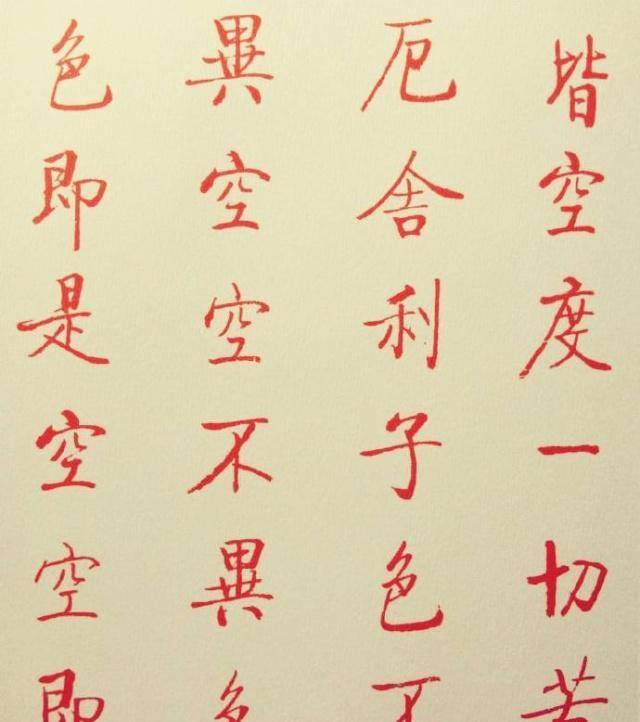 皆空度一切苦
厄舍利子色不
異空空不異色
色即是空空即